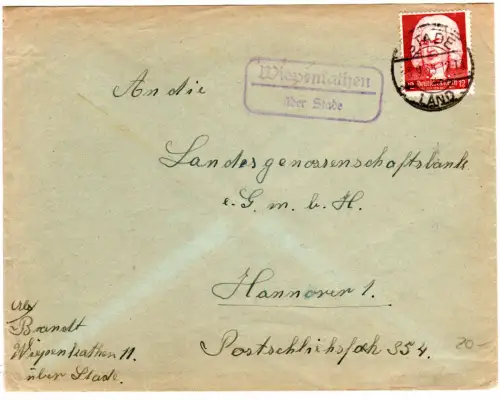 STADE
LAND
Wiepenkathen
über Stade
An die
Landesgenossenschaftsbank
e. G. m. b. H.
Hannover 1.
Postschliessfach 354.
Brandt
Wiepenkathen 11.
über Stade.
20-